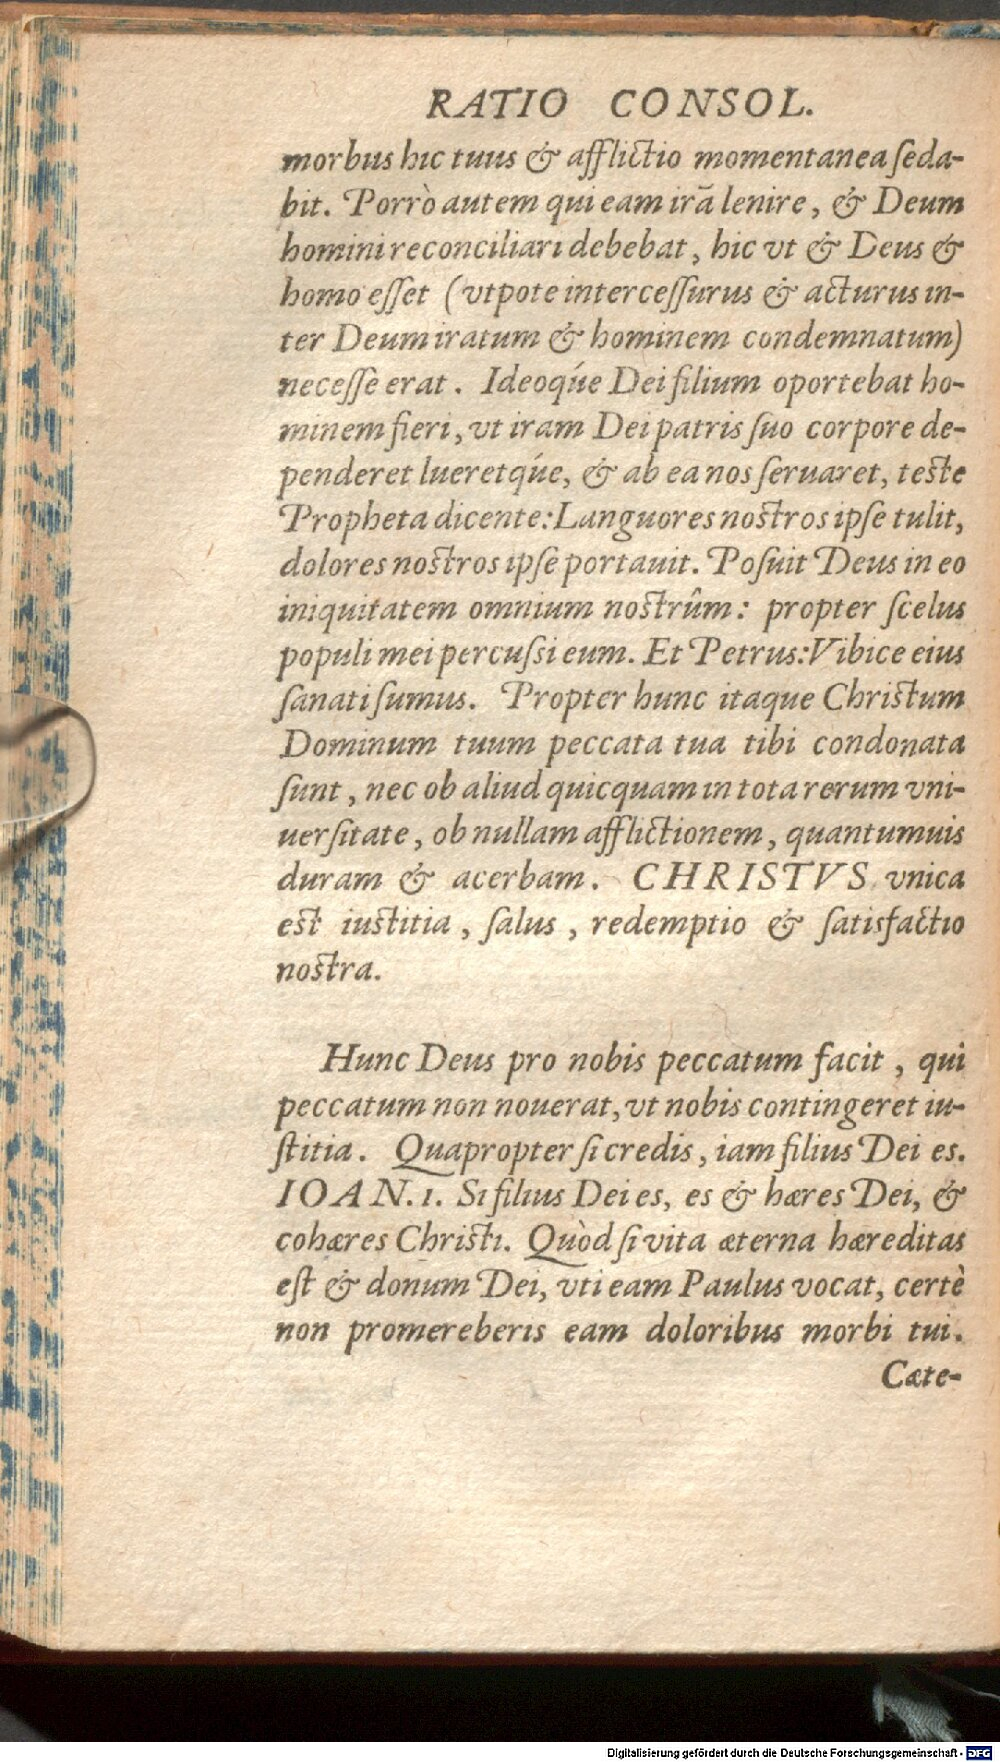 RATIO CONSOL.
morbus hic tuus & afflictio momentanea ſeda-
bit. Porrò autem qui eam irā lenire, & Deum
homini reconciliari debebat, hic vt & Deus &
homo eſſet (vtpote interceſſurus & acturus in-
ter Deum iratum & hominem condemnatum)
neceſſe erat. Ideoq́ue Dei filium oportebat ho-
minem fieri, vt iram Dei patris ſuo corpore de-
penderet lueretq́ue, & ab ea nos ſeruaret, teſte
Propheta dicente: Languores noſtros ipſe tulit,
dolores noſtros ipſe portauit. Poſuit Deus in eo
iniquitatem omnium noſtrûm: propter ſcelus
populi mei percuſsi eum. Et Petrus: Vibice eius
ſanati ſumus. Propter hunc itaque Chriſtum
Dominum tuum peccata tua tibi condonata
ſunt, nec ob aliud quicquam in tota rerum vni-
uerſitate, ob nullam afflictionem, quantumuis
duram & acerbam. CHRISTVS vnica
eſt iuſtitia, ſalus, redemptio & ſatisfactio
noſtra.
Hunc Deus pro nobis peccatum facit, qui
peccatum non nouerat, vt nobis contingeret iu-
ſtitia. Quapropter ſi credis, iam filius Dei es.
IOAN. 1. Si filius Dei es, es & hæres Dei, &
cohæres Chriſti. Quòd ſi vita æterna hæreditas
eſt & donum Dei, vti eam Paulus vocat, certè
non promereberis eam doloribus morbi tui.
Cæte-
Digitalisierung gefördert durch die Deutsche Forschungsgemeinschaft - DFG